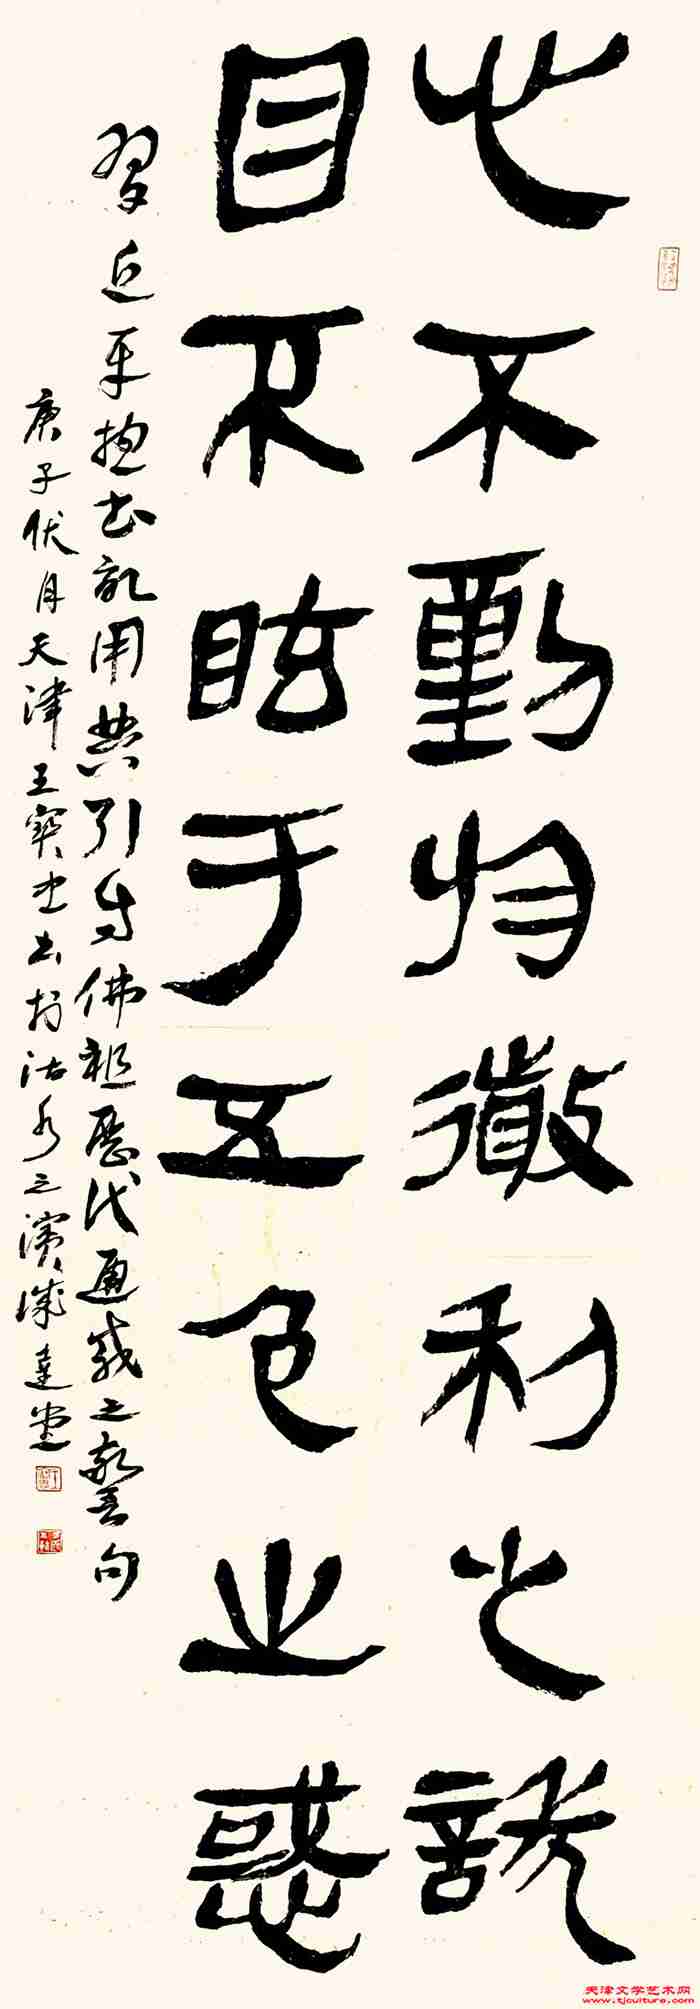 心不動於微利之誘
目不眩于五色之惑
習近平總書記用典引自佛祖歷代通載之警句
庚子伏月天津王寶書於沽水之濱達堂
天津文学艺术网
www.tjculture.com